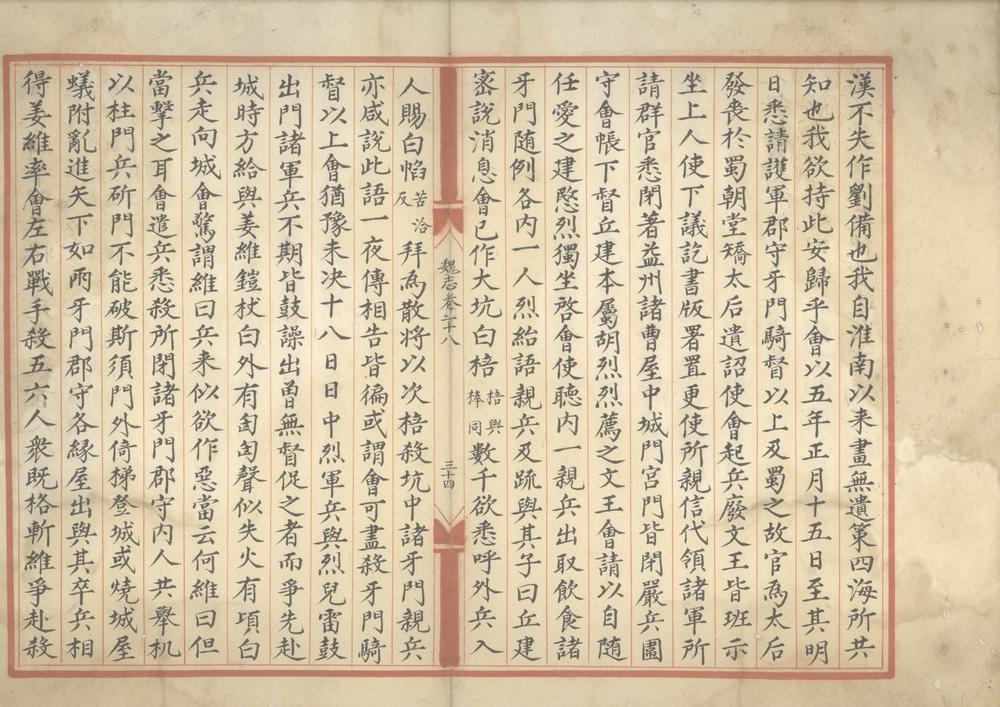 漢不失作劉備也我自淮南以来畫無遺策四海所共
知也我欲持此安歸乎會以五年正月十五日至其明
日悉請護軍郡守牙門騎督以上及蜀之故官為太后
發喪於蜀朝堂矯太后遺詔使會起兵廢文王皆班示
坐上人使下議訖書版署置更使所親信代領諸軍所
請群官悉閉著益州諸曹屋中城門宮門皆閉嚴兵圍
守會帳下督丘建本屬胡烈烈薦之文王會請以自随
任愛之建愍烈獨坐啓會使聴内一親兵出取飲食諸
牙門随例各内一人烈紿語親兵及疏與其子曰丘建
宻說消息會已作大坑白棓棓與棒同數千欲悉呼外兵入
魏志卷二十八
三十四
人賜白㡊苦洽反拜為散将以次棓殺坑中諸牙門親兵
亦咸說此語一夜傳相告皆徧或謂會可盡殺牙門騎
督以上會猶豫未决十八日日中烈軍兵與烈兒雷鼓
出門諸軍兵不期皆鼓譟出曽無督促之者而爭先赴
城時方給與姜維鎧杖白外有匈匈聲似失火有頃白
兵走向城會驚謂維曰兵来似欲作惡當云何維曰但
當擊之耳會遣兵悉殺所閉諸牙門郡守内人共舉机
以柱門兵斫門不能破斯須門外倚梯登城或燒城屋
蟻附亂進矢下如雨牙門郡守各縁屋出與其卒兵相
得姜維率會左右戰手殺五六人衆既格斬維爭赴殺